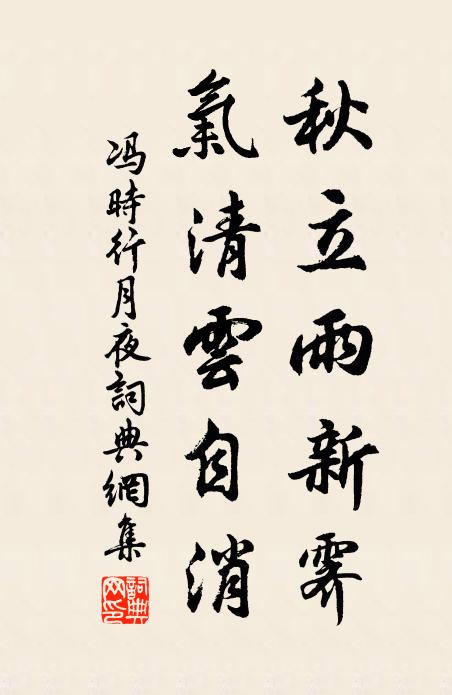 秋立雨新霽
氣清雲自消
冯時行月夜詞典網集
詞典網印